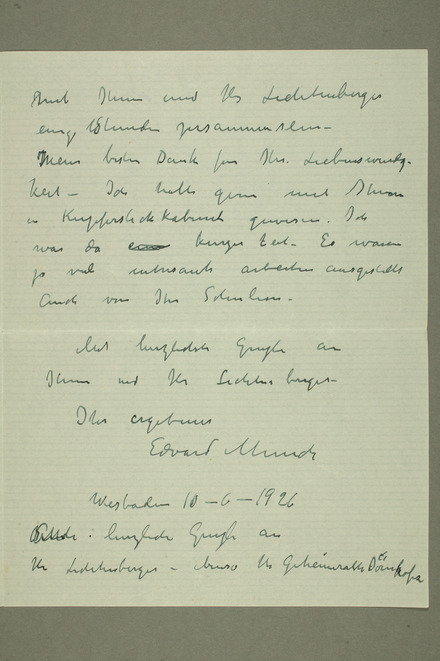 mit Ihnen und Hr Lichtenberger
einige Stunden zusammensein –
Meine besten Dank für Ihr. Liebenswürdig-
keit – Ich hätte gern mit Ihnen
in Kupferstichkabinett gewesen. Ich
war da kurze Zeit – Es waren
ja viel interessante arbeiten ausgestellt
Auch von Ihre
Mit herzlichste Grüsse an
Ihnen und Hr Lichtenberger –
Ihr ergebener
Edvard Munch
Wiesbaden 10 – 6 – 1926
herzliche Grüsse an
Hr Lichtenberger – ebenso Hr Geheimrath